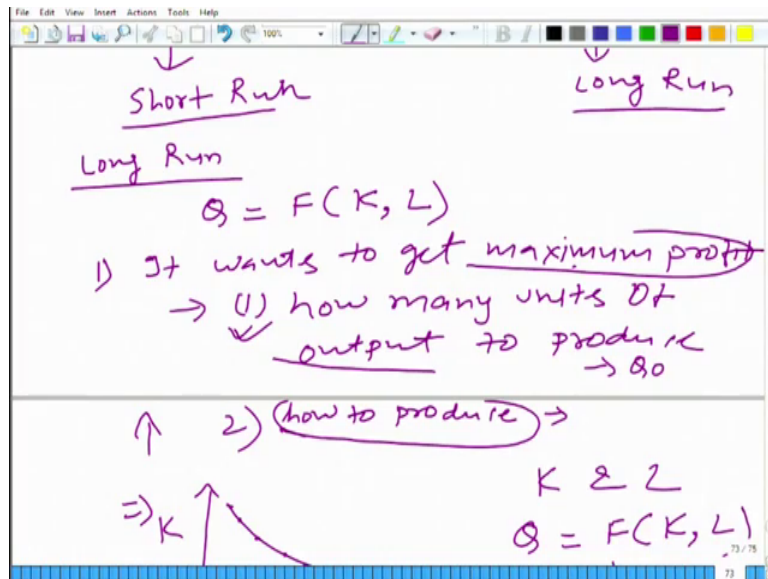 File Edit View Insert Actions Tools Help
100%
Short Run
Long Run
Long Run
Q = F(K, L)
1) It wants to get maximum profit
→ (1) how many units of
output to produce
→ Q0
↑ 2) how to produce →
K & L
⇒ K
Q = F(K, L)
73 / 75
73